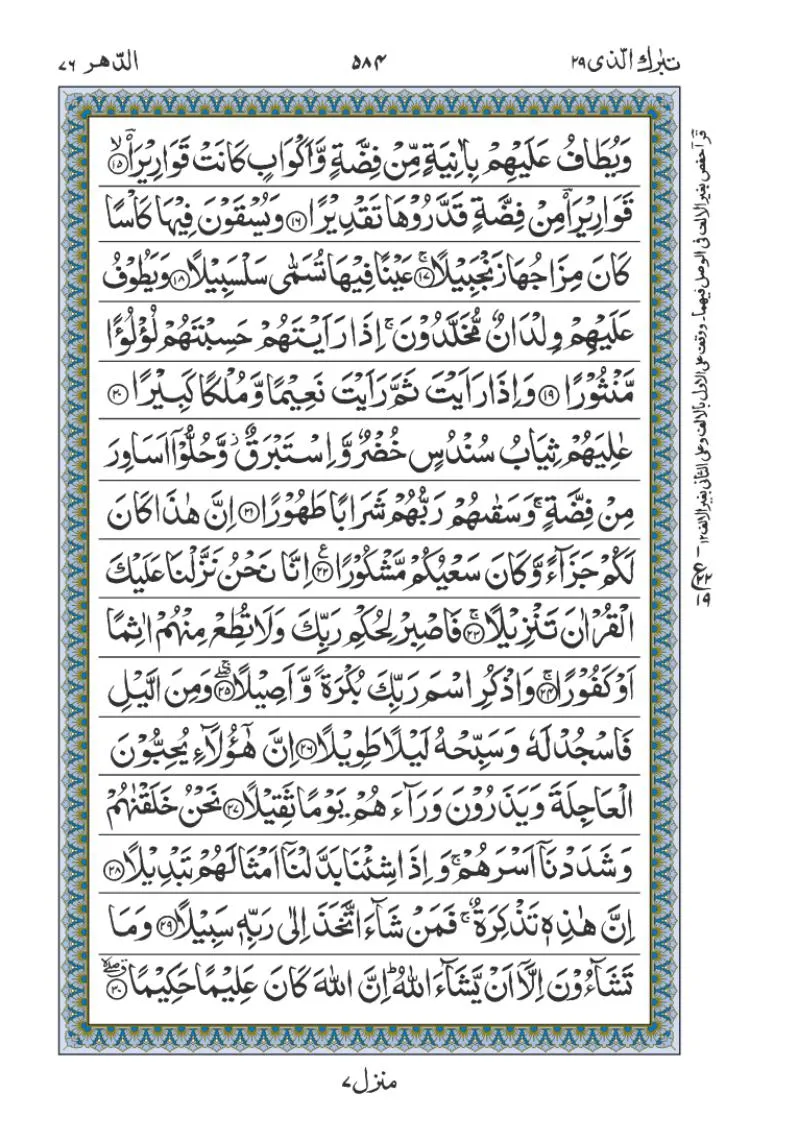 تبٰرك الّذی ٢٩
٥٨٤
الدّهر ٧٦
وَيُطَافُ عَلَيْهِمْ بِاٰنِيَةٍ مِّنْ فِضَّةٍ وَّاَكْوَابٍ كَانَتْ قَوَارِيْرَا۠ ۙ﴿١٥﴾
قَوَارِيْرَا۠ مِنْ فِضَّةٍ قَدَّرُوْهَا تَقْدِيْرًا﴿١٦﴾ وَيُسْقَوْنَ فِيْهَا كَاْسًا
كَانَ مِزَاجُهَا زَنْجَبِيْلًا ۚ﴿١٧﴾ عَيْنًا فِيْهَا تُسَمّٰى سَلْسَبِيْلًا﴿١٨﴾ وَيَطُوْفُ
عَلَيْهِمْ وِلْدَانٌ مُّخَلَّدُوْنَ ۚ اِذَا رَاَيْتَهُمْ حَسِبْتَهُمْ لُؤْلُؤًا
مَّنْثُوْرًا﴿١٩﴾ وَاِذَا رَاَيْتَ ثَمَّ رَاَيْتَ نَعِيْمًا وَّمُلْكًا كَبِيْرًا﴿٢٠﴾
عٰلِيَهُمْ ثِيَابُ سُنْدُسٍ خُضْرٌ وَّاِسْتَبْرَقٌ ۡ وَّحُلُّوْۤا اَسَاوِرَ
مِنْ فِضَّةٍ ۚ وَسَقٰىهُمْ رَبُّهُمْ شَرَابًا طَهُوْرًا﴿٢١﴾ اِنَّ هٰذَا كَانَ
لَكُمْ جَزَآءً وَّكَانَ سَعْيُكُمْ مَّشْكُوْرًا ࣖ﴿٢٢﴾ اِنَّا نَحْنُ نَزَّلْنَا عَلَيْكَ
الْقُرْاٰنَ تَنْزِيْلًا ۚ﴿٢٣﴾ فَاصْبِرْ لِحُكْمِ رَبِّكَ وَلَا تُطِعْ مِنْهُمْ اٰثِمًا
اَوْ كَفُوْرًا ۚ﴿٢٤﴾ وَاذْكُرِ اسْمَ رَبِّكَ بُكْرَةً وَّاَصِيْلًا ۖۚ﴿٢٥﴾ وَمِنَ الَّيْلِ
فَاسْجُدْ لَهٗ وَسَبِّحْهُ لَيْلًا طَوِيْلًا﴿٢٦﴾ اِنَّ هٰٓؤُلَآءِ يُحِبُّوْنَ
الْعَاجِلَةَ وَيَذَرُوْنَ وَرَآءَهُمْ يَوْمًا ثَقِيْلًا﴿٢٧﴾ نَحْنُ خَلَقْنٰهُمْ
وَشَدَدْنَاۤ اَسْرَهُمْ ۚ وَاِذَا شِئْنَا بَدَّلْنَاۤ اَمْثَالَهُمْ تَبْدِيْلًا﴿٢٨﴾
اِنَّ هٰذِهٖ تَذْكِرَةٌ ۚ فَمَنْ شَآءَ اتَّخَذَ اِلٰى رَبِّهٖ سَبِيْلًا﴿٢٩﴾ وَمَا
تَشَآءُوْنَ اِلَّاۤ اَنْ يَّشَآءَ اللّٰهُ ؕ اِنَّ اللّٰهَ كَانَ عَلِيْمًا حَكِيْمًا ۖۗ﴿٣٠﴾
قرأ حفص بغير الالف فی الوصل فيهما۔ ووقف علی الاول بالالف وعلی الثانی بغير الالف ١٢
منزل ٧